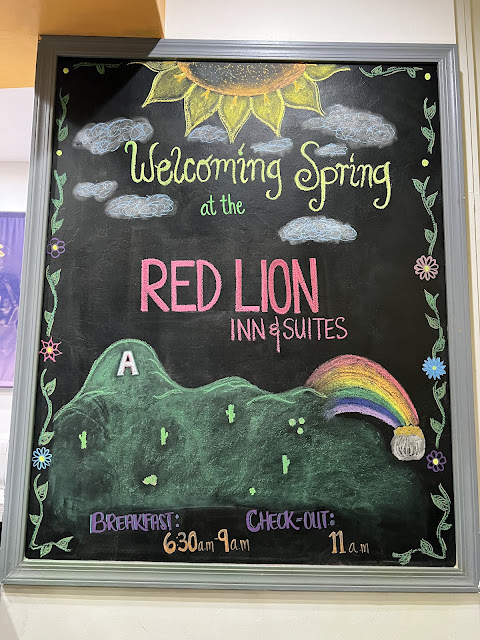 Welcoming Spring
at the
RED LION
INN & SUITES
A
BREAKFAST: CHECK-OUT:
6:30am-9am 11am